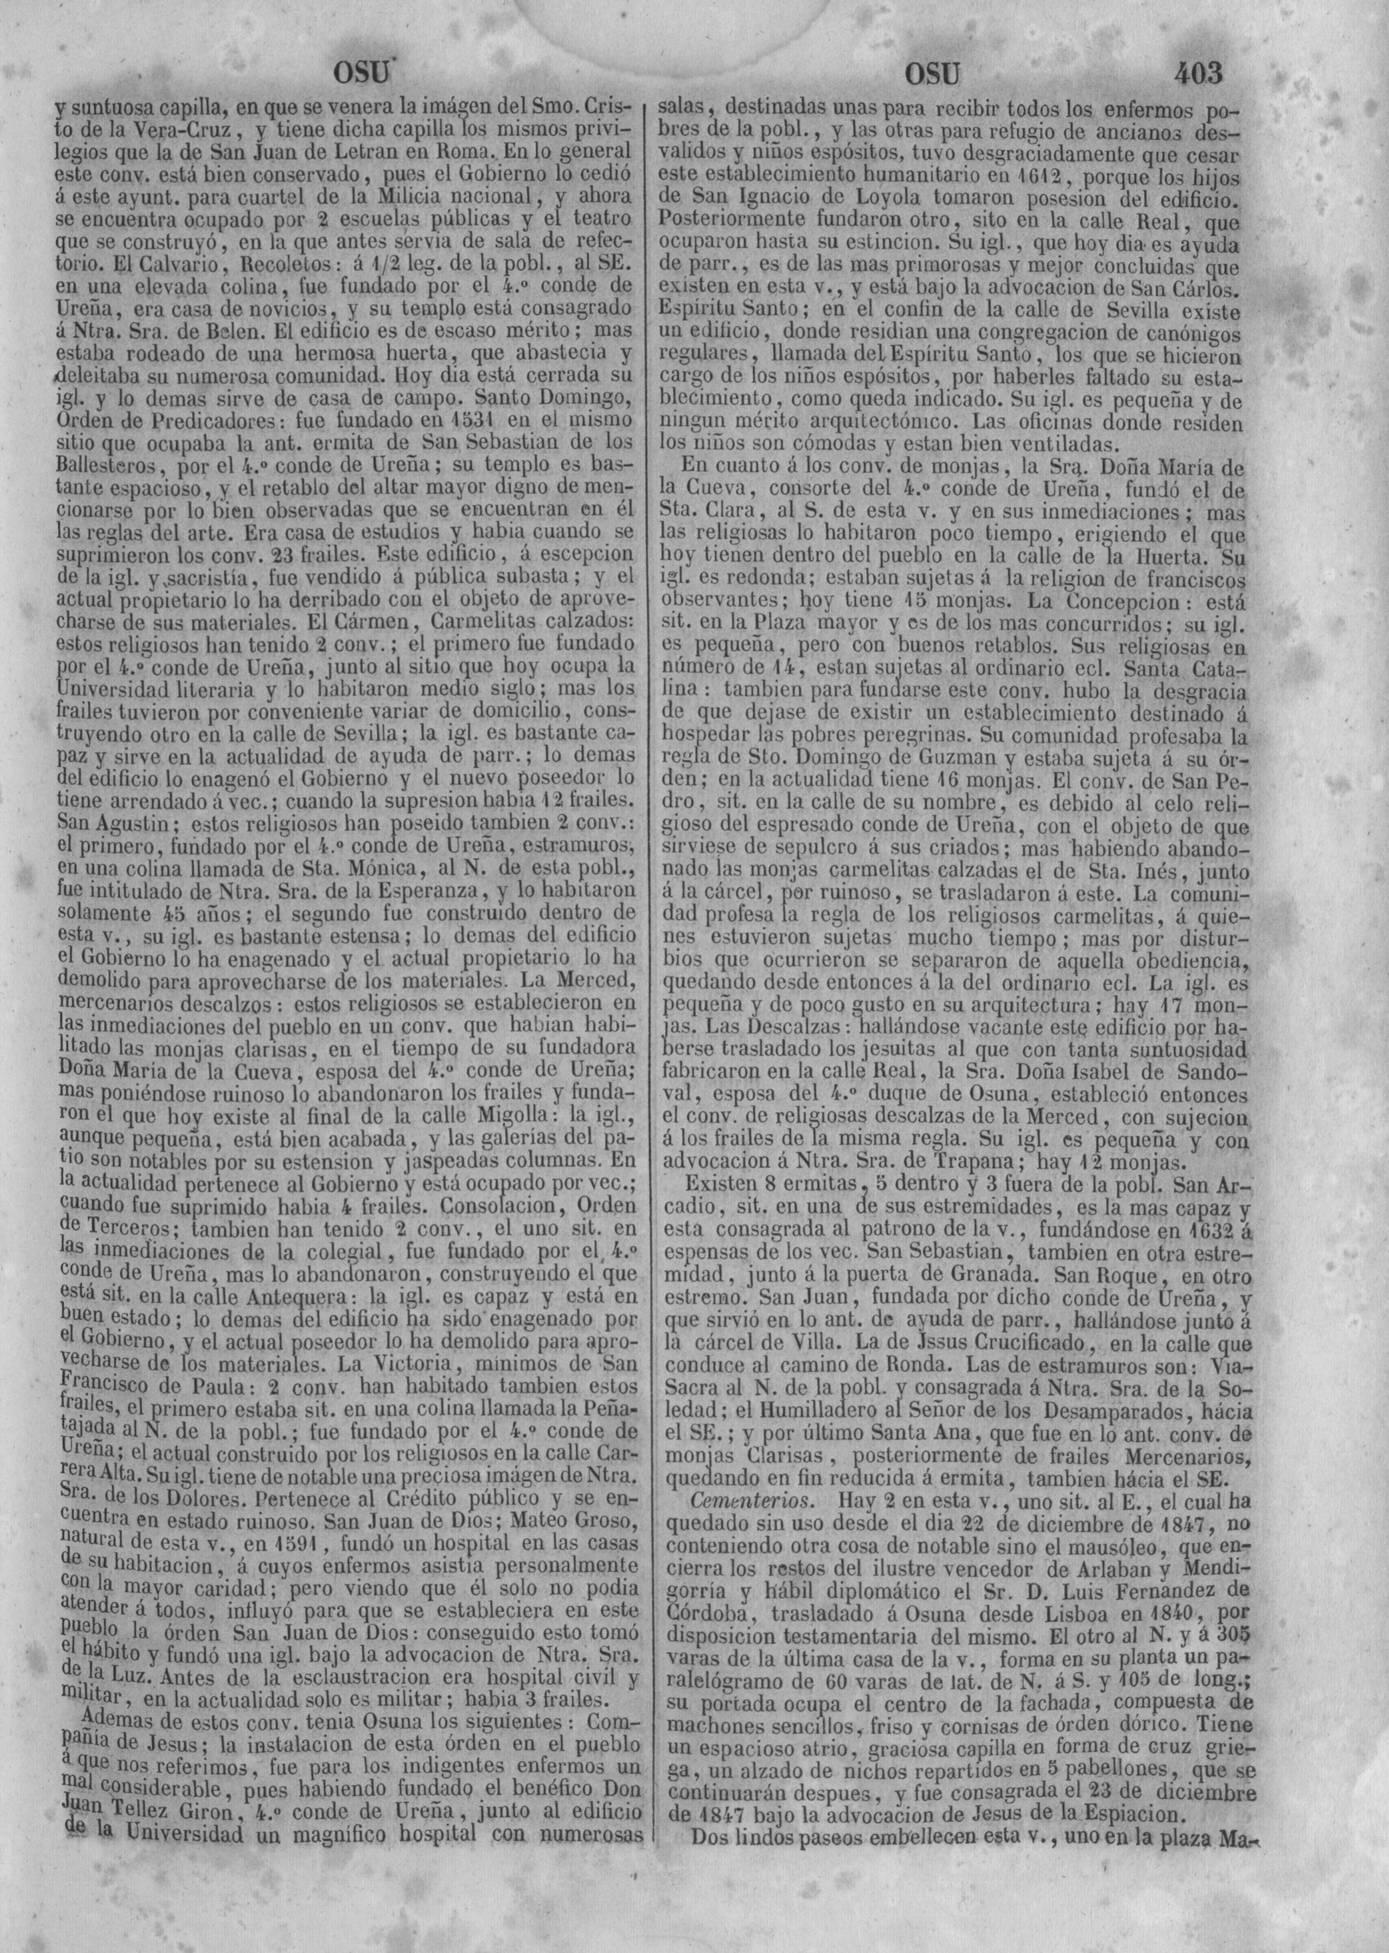 OSU
y suntuosa capilla, en que se venera la imágen del Smo. Cris-
to de la Vera-Cruz, y tiene dicha capilla los mismos privi-
legios que la de San Juan de Letran en Roma. En lo general
este conv. está bien conservado, pues el Gobierno lo cedió
á este ayunt. para cuartel de la Milicia nacional, y ahora
se encuentra ocupado por 2 escuelas públicas y el teatro
que se construyó, en la que antes servia de sala de refec-
torio. El Calvario, Recoletos: á 1/2 leg. de la pobl., al SE.
en una elevada colina, fue fundado por el 4.º conde de
Ureña, era casa de novicios, y su templo está consagrado
á Ntra. Sra. de Belen. El edificio es de escaso mérito; mas
estaba rodeado de una hermosa huerta, que abastecia y
deleitaba su numerosa comunidad. Hoy dia está cerrada su
igl. y lo demas sirve de casa de campo. Santo Domingo,
Orden de Predicadores: fue fundado en 1531 en el mismo
sitio que ocupaba la ant. ermita de San Sebastian de los
Ballesteros, por el 4.º conde de Ureña; su templo es bas-
tante espacioso, y el retablo del altar mayor digno de men-
cionarse por lo bien observadas que se encuentran en él
las reglas del arte. Era casa de estudios y habia cuando se
suprimieron los conv. 23 frailes. Este edificio, á escepcion
de la igl. y sacristía, fue vendido á pública subasta; y el
actual propietario lo ha derribado con el objeto de aprove-
charse de sus materiales. El Cármen, Carmelitas calzados:
estos religiosos han tenido 2 conv.; el primero fue fundado
por el 4.º conde de Ureña, junto al sitio que hoy ocupa la
Universidad literaria y lo habitaron medio siglo; mas los
frailes tuvieron por conveniente variar de domicilio, cons-
truyendo otro en la calle de Sevilla; la igl. es bastante ca-
paz y sirve en la actualidad de ayuda de parr.; lo demas
del edificio lo enagenó el Gobierno y el nuevo poseedor lo
tiene arrendado á vec.; cuando la supresion habia 12 frailes.
San Agustin; estos religiosos han poseido tambien 2 conv.:
el primero, fundado por el 4.º conde de Ureña, estramuros,
en una colina llamada de Sta. Mónica, al N. de esta pobl.,
fue intitulado de Ntra. Sra. de la Esperanza, y lo habitaron
solamente 45 años; el segundo fue construido dentro de
esta v., su igl. es bastante estensa; lo demas del edificio
el Gobierno lo ha enagenado y el actual propietario lo ha
demolido para aprovecharse de los materiales. La Merced,
mercenarios descalzos: estos religiosos se establecieron en
las inmediaciones del pueblo en un conv. que habian habi-
litado las monjas clarisas, en el tiempo de su fundadora
Doña Maria de la Cueva, esposa del 4.º conde de Ureña;
mas poniéndose ruinoso lo abandonaron los frailes y funda-
ron el que hoy existe al final de la calle Migolla: la igl.,
aunque pequeña, está bien acabada, y las galerías del pa-
tio son notables por su estension y jaspeadas columnas. En
la actualidad pertenece al Gobierno y está ocupado por vec.;
cuando fue suprimido habia 4 frailes. Consolacion, Orden
de Terceros; tambien han tenido 2 conv., el uno sit. en
las inmediaciones de la colegial, fue fundado por el 4.º
conde de Ureña, mas lo abandonaron, construyendo el que
está sit. en la calle Antequera: la igl. es capaz y está en
buen estado; lo demas del edificio ha sido enagenado por
el Gobierno, y el actual poseedor lo ha demolido para apro-
vecharse de los materiales. La Victoria, mínimos de San
Francisco de Paula: 2 conv. han habitado tambien estos
frailes, el primero estaba sit. en una colina llamada la Peña-
tajada al N. de la pobl.; fue fundado por el 4.º conde de
Ureña; el actual construido por los religiosos en la calle Car-
rera Alta. Su igl. tiene de notable una preciosa imágen de Ntra.
Sra. de los Dolores. Pertenece al Crédito público y se en-
cuentra en estado ruinoso. San Juan de Dios; Mateo Groso,
natural de esta v., en 1591, fundó un hospital en las casas
de su habitacion, á cuyos enfermos asistia personalmente
con la mayor caridad; pero viendo que él solo no podia
atender á todos, influyó para que se estableciera en este
pueblo la órden San Juan de Dios: conseguido esto tomó
el hábito y fundó una igl. bajo la advocacion de Ntra. Sra.
de la Luz. Antes de la esclaustracion era hospital civil y
militar, en la actualidad solo es militar; habia 3 frailes.
Ademas de estos conv. tenia Osuna los siguientes: Com-
pañía de Jesus; la instalacion de esta órden en el pueblo
á que nos referimos, fue para los indigentes enfermos un
mal considerable, pues habiendo fundado el benéfico Don
Juan Tellez Giron, 4.º conde de Ureña, junto al edificio
de la Universidad un magnífico hospital con numerosas
OSU 403
salas, destinadas unas para recibir todos los enfermos po-
bres de la pobl., y las otras para refugio de ancianos des-
validos y niños espósitos, tuvo desgraciadamente que cesar
este establecimiento humanitario en 1612, porque los hijos
de San Ignacio de Loyola tomaron posesion del edificio.
Posteriormente fundaron otro, sito en la calle Real, que
ocuparon hasta su estincion. Su igl., que hoy dia es ayuda
de parr., es de las mas primorosas y mejor concluidas que
existen en esta v., y está bajo la advocacion de San Cárlos.
Espíritu Santo; en el confin de la calle de Sevilla existe
un edificio, donde residian una congregacion de canónigos
regulares, llamada del Espíritu Santo, los que se hicieron
cargo de los niños espósitos, por haberles faltado su esta-
blecimiento, como queda indicado. Su igl. es pequeña y de
ningun mérito arquitectónico. Las oficinas donde residen
los niños son cómodas y estan bien ventiladas.
En cuanto á los conv. de monjas, la Sra. Doña María de
la Cueva, consorte del 4.º conde de Ureña, fundó el de
Sta. Clara, al S. de esta v. y en sus inmediaciones; mas
las religiosas lo habitaron poco tiempo, erigiendo el que
hoy tienen dentro del pueblo en la calle de la Huerta. Su
igl. es redonda; estaban sujetas á la religion de franciscos
observantes; hoy tiene 15 monjas. La Concepcion: está
sit. en la Plaza mayor y es de los mas concurridos; su igl.
es pequeña, pero con buenos retablos. Sus religiosas en
número de 14, estan sujetas al ordinario ecl. Santa Cata-
lina: tambien para fundarse este conv. hubo la desgracia
de que dejase de existir un establecimiento destinado á
hospedar las pobres peregrinas. Su comunidad profesaba la
regla de Sto. Domingo de Guzman y estaba sujeta á su ór-
den; en la actualidad tiene 16 monjas. El conv. de San Pe-
dro, sit. en la calle de su nombre, es debido al celo reli-
gioso del espresado conde de Ureña, con el objeto de que
sirviese de sepulcro á sus criados; mas habiendo abando-
nado las monjas carmelitas calzadas el de Sta. Inés, junto
á la cárcel, por ruinoso, se trasladaron á este. La comuni-
dad profesa la regla de los religiosos carmelitas, á quie-
nes estuvieron sujetas mucho tiempo; mas por distur-
bios que ocurrieron se separaron de aquella obediencia,
quedando desde entonces á la del ordinario ecl. La igl. es
pequeña y de poco gusto en su arquitectura; hay 17 mon-
jas. Las Descalzas: hallándose vacante este edificio por ha-
berse trasladado los jesuitas al que con tanta suntuosidad
fabricaron en la calle Real, la Sra. Doña Isabel de Sando-
val, esposa del 4.º duque de Osuna, estableció entonces
el conv. de religiosas descalzas de la Merced, con sujecion
á los frailes de la misma regla. Su igl. es pequeña y con
advocacion á Ntra. Sra. de Trapana; hay 12 monjas.
Existen 8 ermitas, 5 dentro y 3 fuera de la pobl. San Ar-
cadio, sit. en una de sus estremidades, es la mas capaz y
está consagrada al patrono de la v., fundándose en 1632 á
espensas de los vec. San Sebastian, tambien en otra estre-
midad, junto á la puerta de Granada. San Roque, en otro
estremo. San Juan, fundada por dicho conde de Ureña, y
que sirvió en lo ant. de ayuda de parr., hallándose junto á
la cárcel de Villa. La de Jssus Crucificado, en la calle que
conduce al camino de Ronda. Las de estramuros son: Via-
Sacra al N. de la pobl. y consagrada á Ntra. Sra. de la So-
ledad; el Humilladero al Señor de los Desamparados, hácia
el SE.; y por último Santa Ana, que fue en lo ant. conv. de
monjas Clarisas, posteriormente de frailes Mercenarios,
quedando en fin reducida á ermita, tambien hácia el SE.
Cementerios. Hay 2 en esta v., uno sit. al E., el cual ha
quedado sin uso desde el dia 22 de diciembre de 1847, no
conteniendo otra cosa de notable sino el mausóleo, que en-
cierra los restos del ilustre vencedor de Arlaban y Mendi-
gorría y hábil diplomático el Sr. D. Luis Fernandez de
Córdoba, trasladado á Osuna desde Lisboa en 1840, por
disposicion testamentaria del mismo. El otro al N. y á 305
varas de la última casa de la v., forma en su planta un pa-
ralelógramo de 60 varas de lat. de N. á S. y 105 de long.;
su portada ocupa el centro de la fachada, compuesta de
machones sencillos, friso y cornisas de órden dórico. Tiene
un espacioso atrio, graciosa capilla en forma de cruz grie-
ga, un alzado de nichos repartidos en 5 pabellones, que se
continuarán despues, y fue consagrada el 23 de diciembre
de 1847 bajo la advocacion de Jesus de la Espiacion.
Dos lindos paseos embellecen esta v., uno en la plaza Ma-